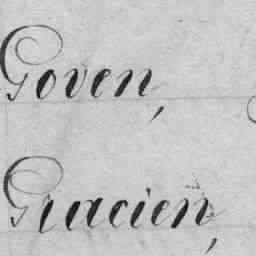 Goven,
Gracien,